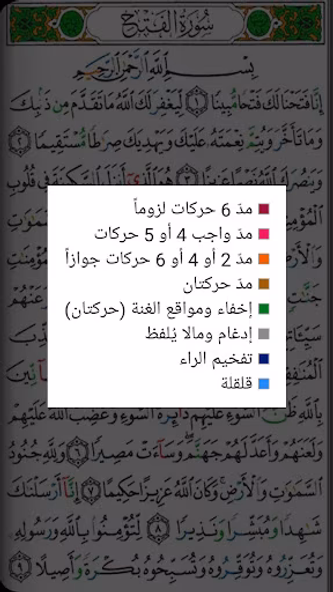 سُورَةُ الفَتْحِ
بِسْمِ اللَّهِ الرَّحْمَٰنِ الرَّحِيمِ
إِنَّا فَتَحْنَا لَكَ فَتْحًا مُّبِينًا ١ لِّيَغْفِرَ لَكَ اللَّهُ مَا تَقَدَّمَ مِن ذَنۢبِكَ
وَمَا تَأَخَّرَ وَيُتِمَّ نِعْمَتَهُ عَلَيْكَ وَيَهْدِيَكَ صِرَاطًا مُّسْتَقِيمًا ٢
وَيَنصُرَكَ اللَّهُ نَصْرًا عَزِيزًا ٣ هُوَ الَّذِي أَنزَلَ السَّكِينَةَ فِي قُلُوبِ
مدّ 6 حركات لزوماً
مدّ واجب 4 أو 5 حركات
مدّ 2 أو 4 أو 6 حركات جوازاً
مدّ حركتان
إخفاء ومواقع الغنة (حركتان)
إدغام ومالا يُلفظ
تفخيم الراء
قلقلة
عَلَيْهِمْ دَآئِرَةُ السَّوْءِ وَغَضِبَ اللَّهُ عَلَيْهِمْ
وَلَعَنَهُمْ وَأَعَدَّ لَهُمْ جَهَنَّمَ وَسَآءَتْ مَصِيرًا ٦ وَلِلَّهِ جُنُودُ
السَّمَٰوَٰتِ وَالْأَرْضِ وَكَانَ اللَّهُ عَزِيزًا حَكِيمًا ٧ إِنَّآ أَرْسَلْنَٰكَ
شَٰهِدًا وَمُبَشِّرًا وَنَذِيرًا ٨ لِّتُؤْمِنُوا۟ بِاللَّهِ وَرَسُولِهِ
وَتُعَزِّرُوهُ وَتُوَقِّرُوهُ وَتُسَبِّحُوهُ بُكْرَةً وَأَصِيلًا ٩